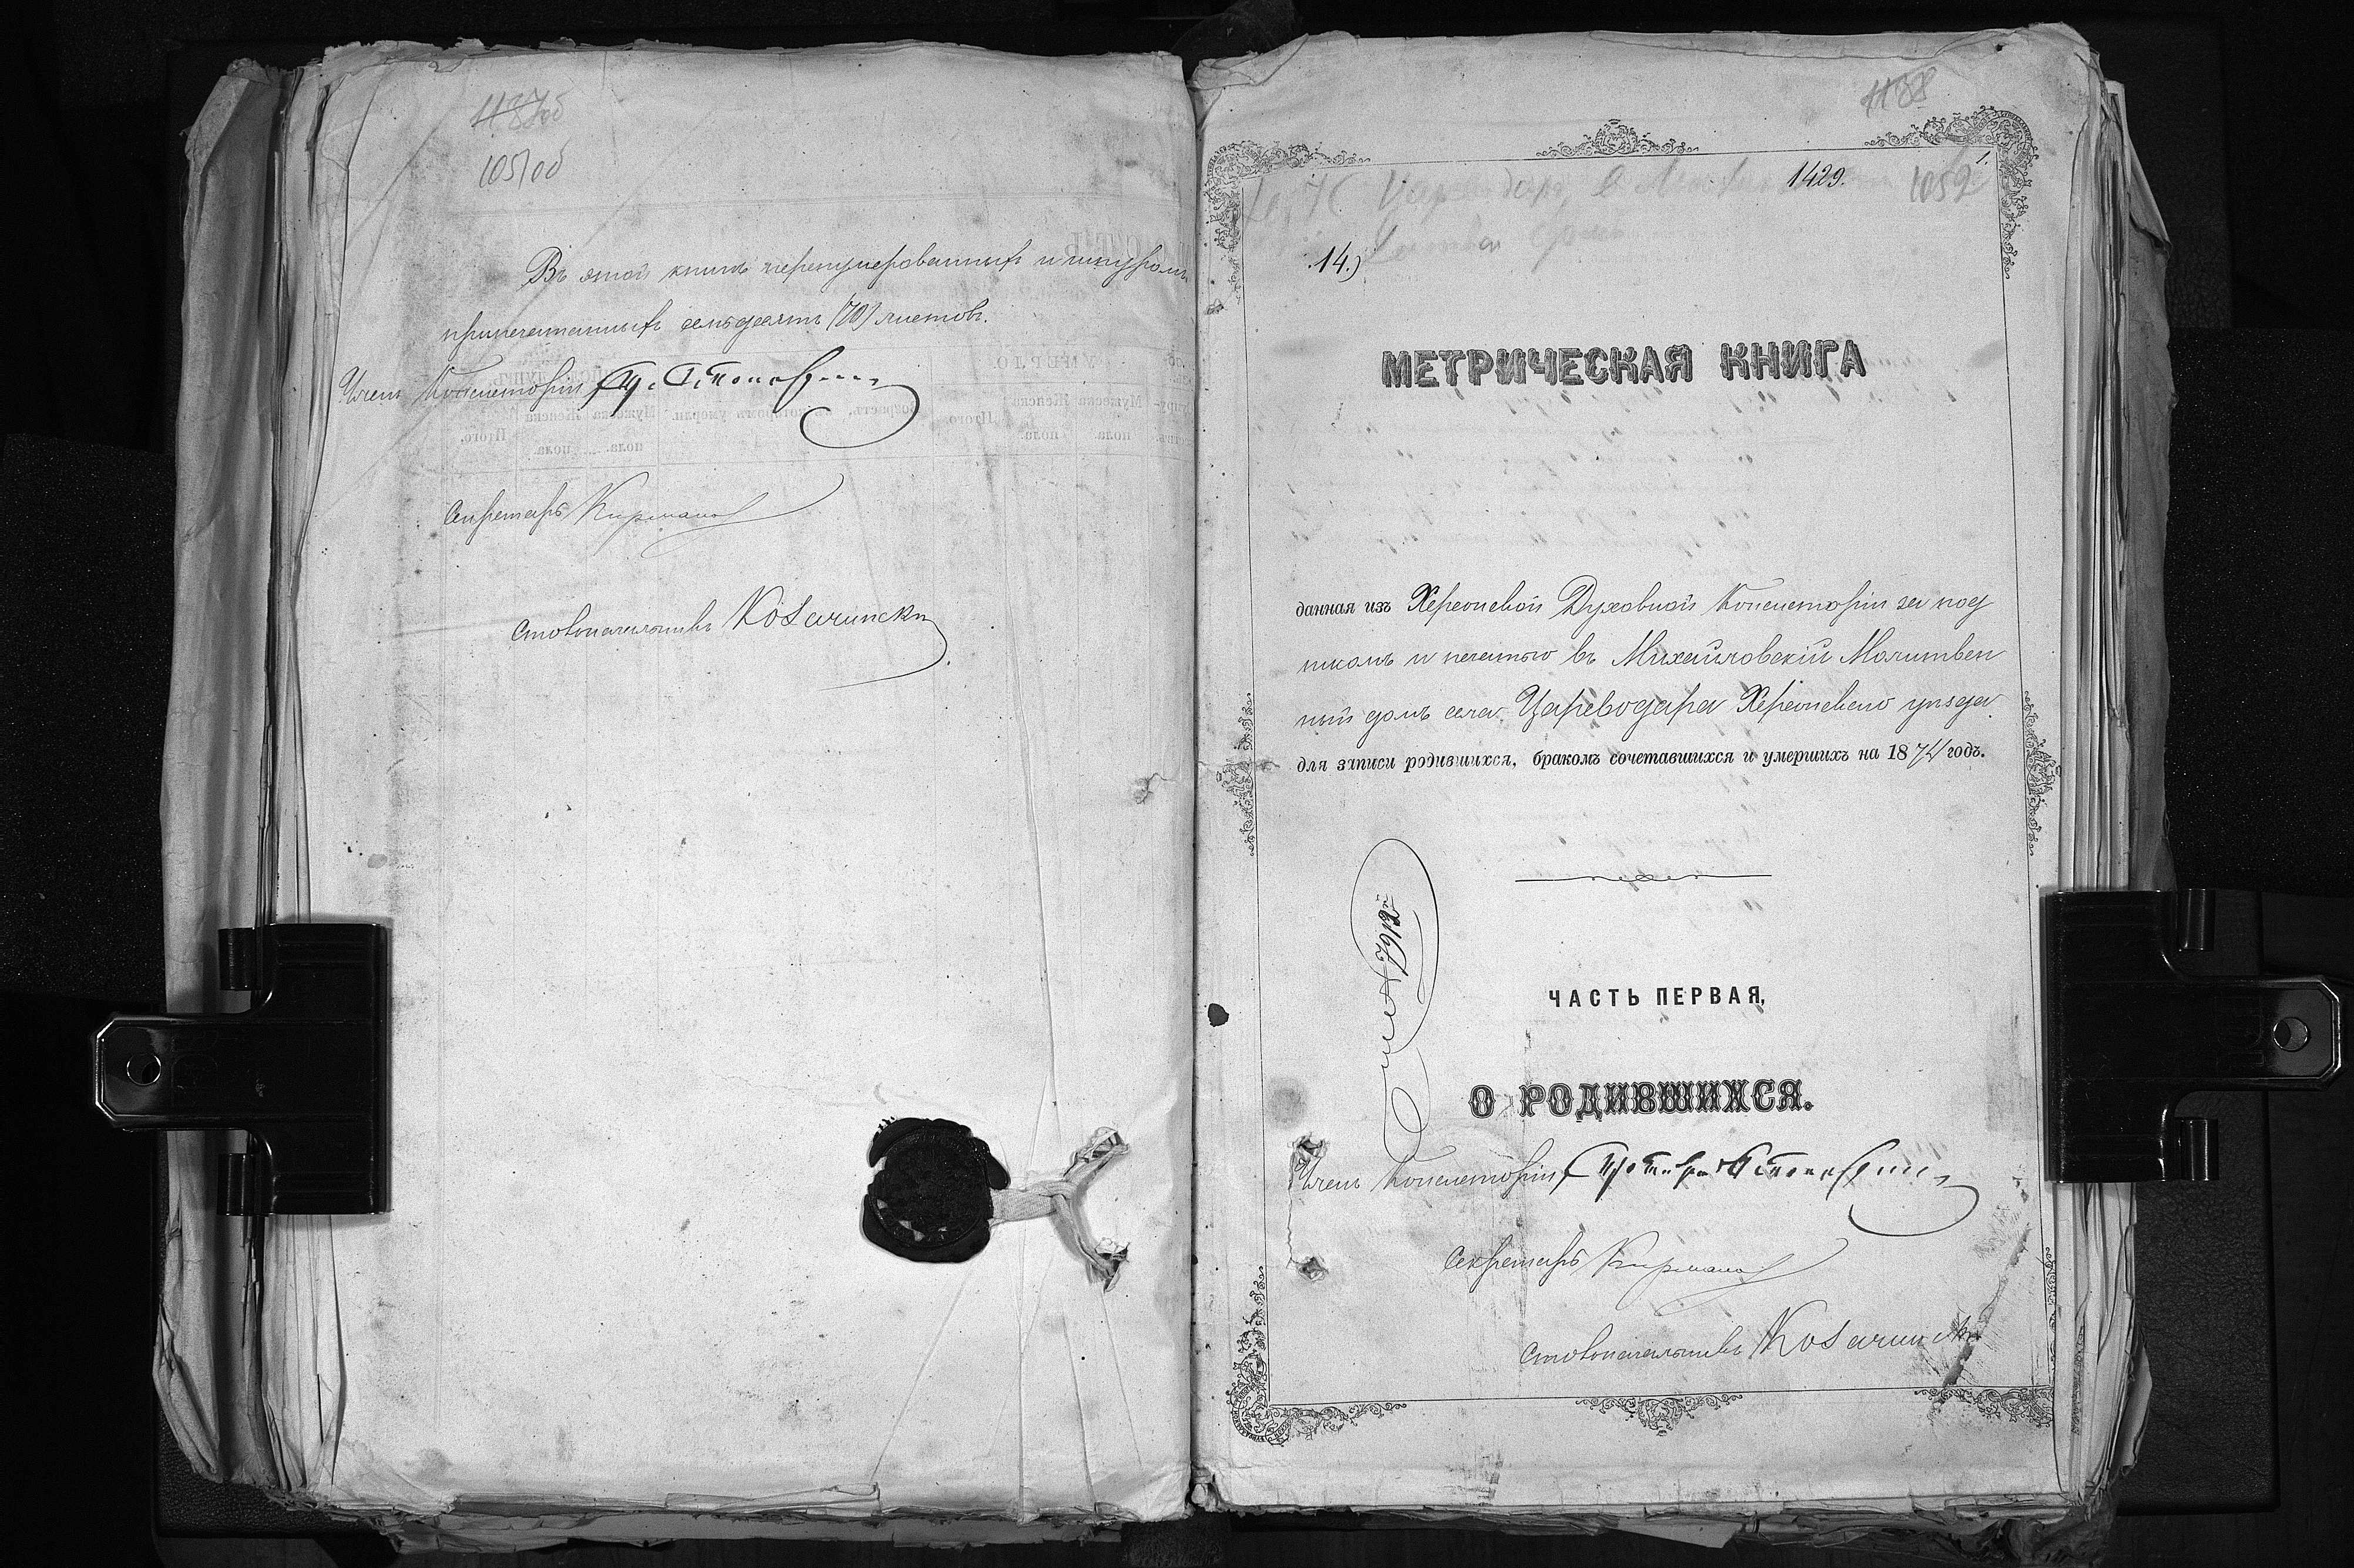 1137об
1051об
Въ этой книгѣ перенумерованныхъ и шнуромъ
припечатанныхъ семьдесятъ (70) листовъ.
Членъ Консисторіи
Секретарь
Столоначальникъ
1138
1429.
1.
1052
14.)
МЕТРИЧЕСКАЯ КНИГА
данная изъ Херсонской Духовной Консисторіи за под
писомъ и печатью въ Михайловскій Молитвен
ный домъ села Цареводара Херсонскаго уѣзда
для записи родившихся, бракомъ сочетавшихся и умершихъ на 1874 годъ.
ЧАСТЬ ПЕРВАЯ,
О РОДИВШИХСЯ.
Членъ Консисторіи
Секретарь
Столоначальникъ